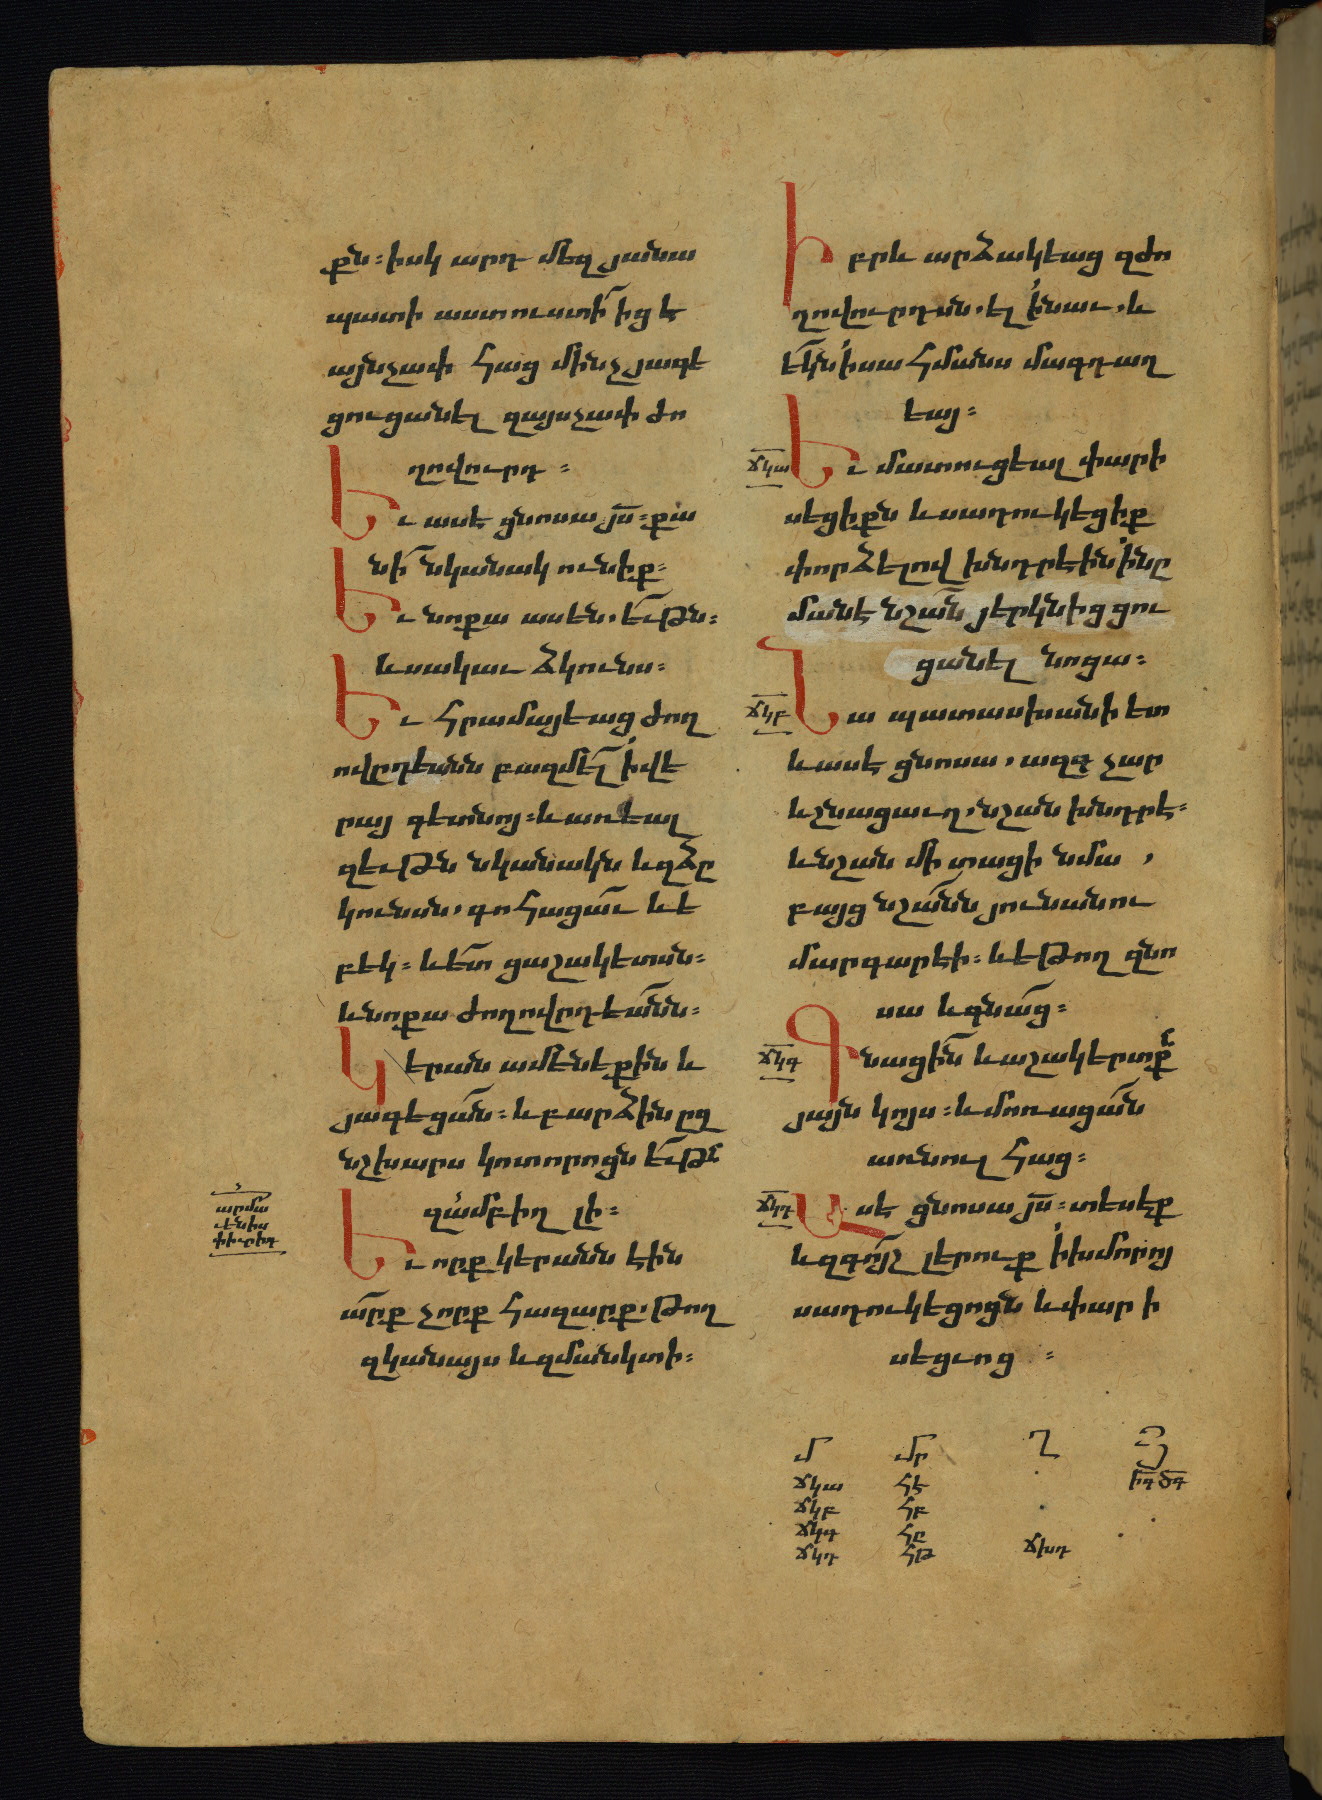 քն։ իսկ արդ մեզ յանա
պատի աստ ուստի՞ իցէ
այնչափ հաց մինչ յագե
ցուցանել զայսչափ ժո
ղովուրդ։
Եւ ասէ ցնոսա յս։ քա
նի՞ նկանակ ունիք։
Եւ նոքա ասեն, եւթն։
և սակաւ ձկունս։
Եւ հրամայեաց ժող
ովըրդեանն բազմել ի վե
րայ գետնոյ։ և առեալ
զեւթն նկանակն և զձը
կունսն, գոհացաւ և ե
բեկ։ և ետ ցաշակետսն։
և նոքա ժողովըրդեանն։
Կերան ամենեքին և
յագեցան։ և բարձին ըզ
նշխարս կոտորոցն եւթն
զամբիղ լի։
Եւ որք կերանն էին
արք չորք հազարք, թող
զկանայս և զմանկտի։
Իբրև արձակեաց զժո
ղովուրդսն, ել ի նաւ, և
եկն ի սահմանս մագդաղ
եայ։
ճկա Եւ մատուցեալ փարի
սեցիքն և սադուկեցիք
փորձելով խնդրէին ի նը
մանէ նշան յերկնից ցու
ցանել նոցա։
ճկբ Նա պատասխանի ետ
և ասէ ցնոսա, ազգ չար
և շնացաւղ, նշան խնդրէ։
և նշան մի տացի նմա,
բայց նշանն յունանու
մարգարէի։ և եթող զնո
սա և գնաց։
ճկգ Գնացին և աշակերտքն
յայն կոյս։ և մոռացան
առնուլ հաց։
ճկդ Ասէ ցնոսա յս։ տեսէք
և զգոյշ լերուք ի խմորոյ
սադուկեցոցն և փարի
սեցւոց։
մ մր ղ յ
ճկա հէ իգ ծգ
ճկբ հբ
ճկգ հը
ճկդ հթ ճխդ